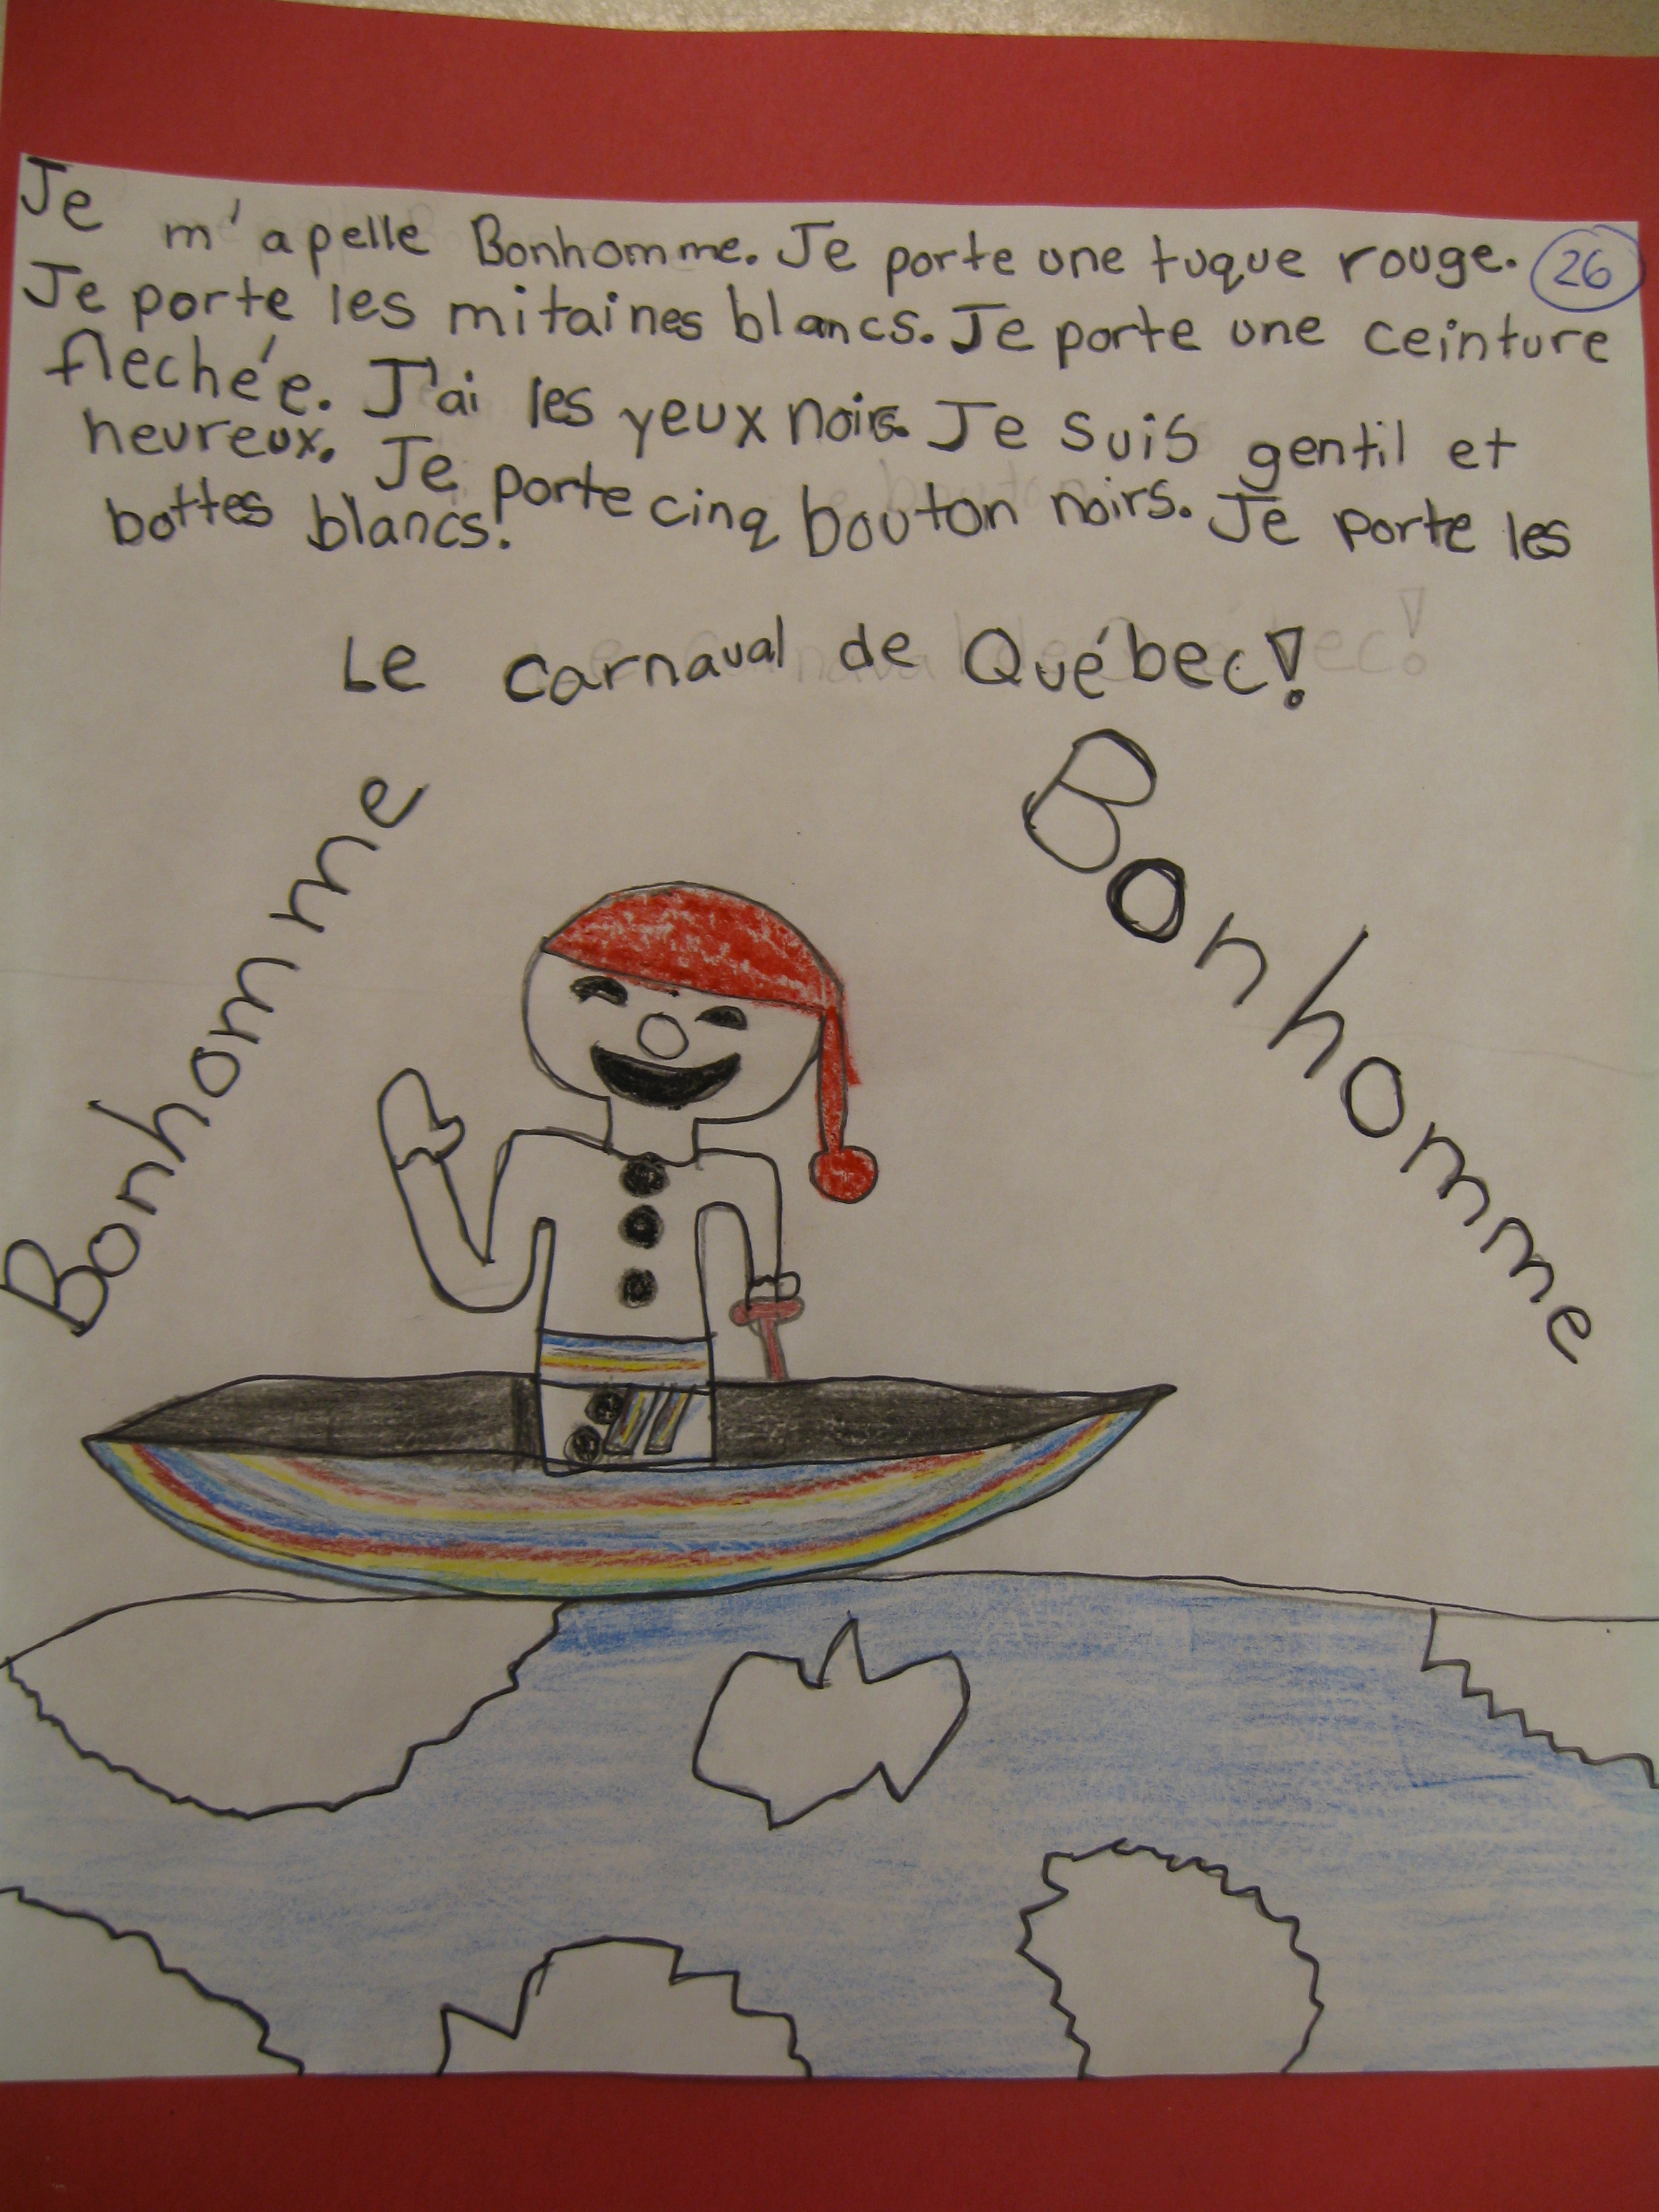 Je m'apelle Bonhomme. Je porte une tuque rouge. 26
Je porte les mitaines blancs. Je porte une ceinture
fleché'e. J'ai les yeux noirs. Je suis gentil et
heureux. Je porte cinq bouton noirs. Je porte les
bottes blancs!
Le carnaval de Québec!
Bonhomme
Bonhomme